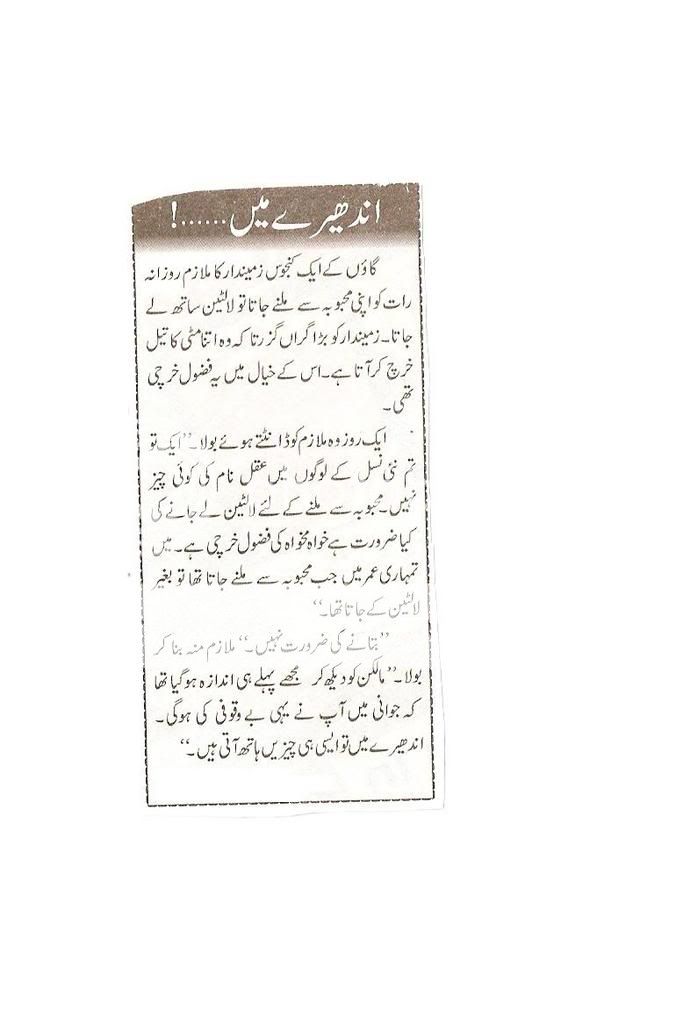 اندھیرے میں......!
گاؤں کے ایک کنجوس زمیندار کا ملازم روزانہ
رات کو اپنی محبوبہ سے ملنے جاتا تو لالٹین ساتھ لے
جاتا۔ زمیندار کو بڑا گراں گزرتا کہ وہ اتنا مٹی کا تیل
خرچ کر آتا ہے۔ اس کے خیال میں یہ فضول خرچی
تھی۔
ایک روز وہ ملازم کو ڈانٹتے ہوئے بولا۔ ”ایک تو
تم نئی نسل کے لوگوں میں عقل نام کی کوئی چیز
نہیں۔ محبوبہ سے ملنے کے لئے لالٹین لے جانے کی
کیا ضرورت ہے خواہ مخواہ کی فضول خرچی ہے۔ میں
تمہاری عمر میں جب محبوبہ سے ملنے جاتا تھا تو بغیر
لالٹین کے جاتا تھا۔“
”بتانے کی ضرورت نہیں۔“ ملازم منہ بنا کر
بولا۔ ”مالکن کو دیکھ کر مجھے پہلے ہی اندازہ ہو گیا تھا
کہ جوانی میں آپ نے یہی بے وقوفی کی ہوگی۔
اندھیرے میں تو ایسی ہی چیزیں ہاتھ آتی ہیں۔“